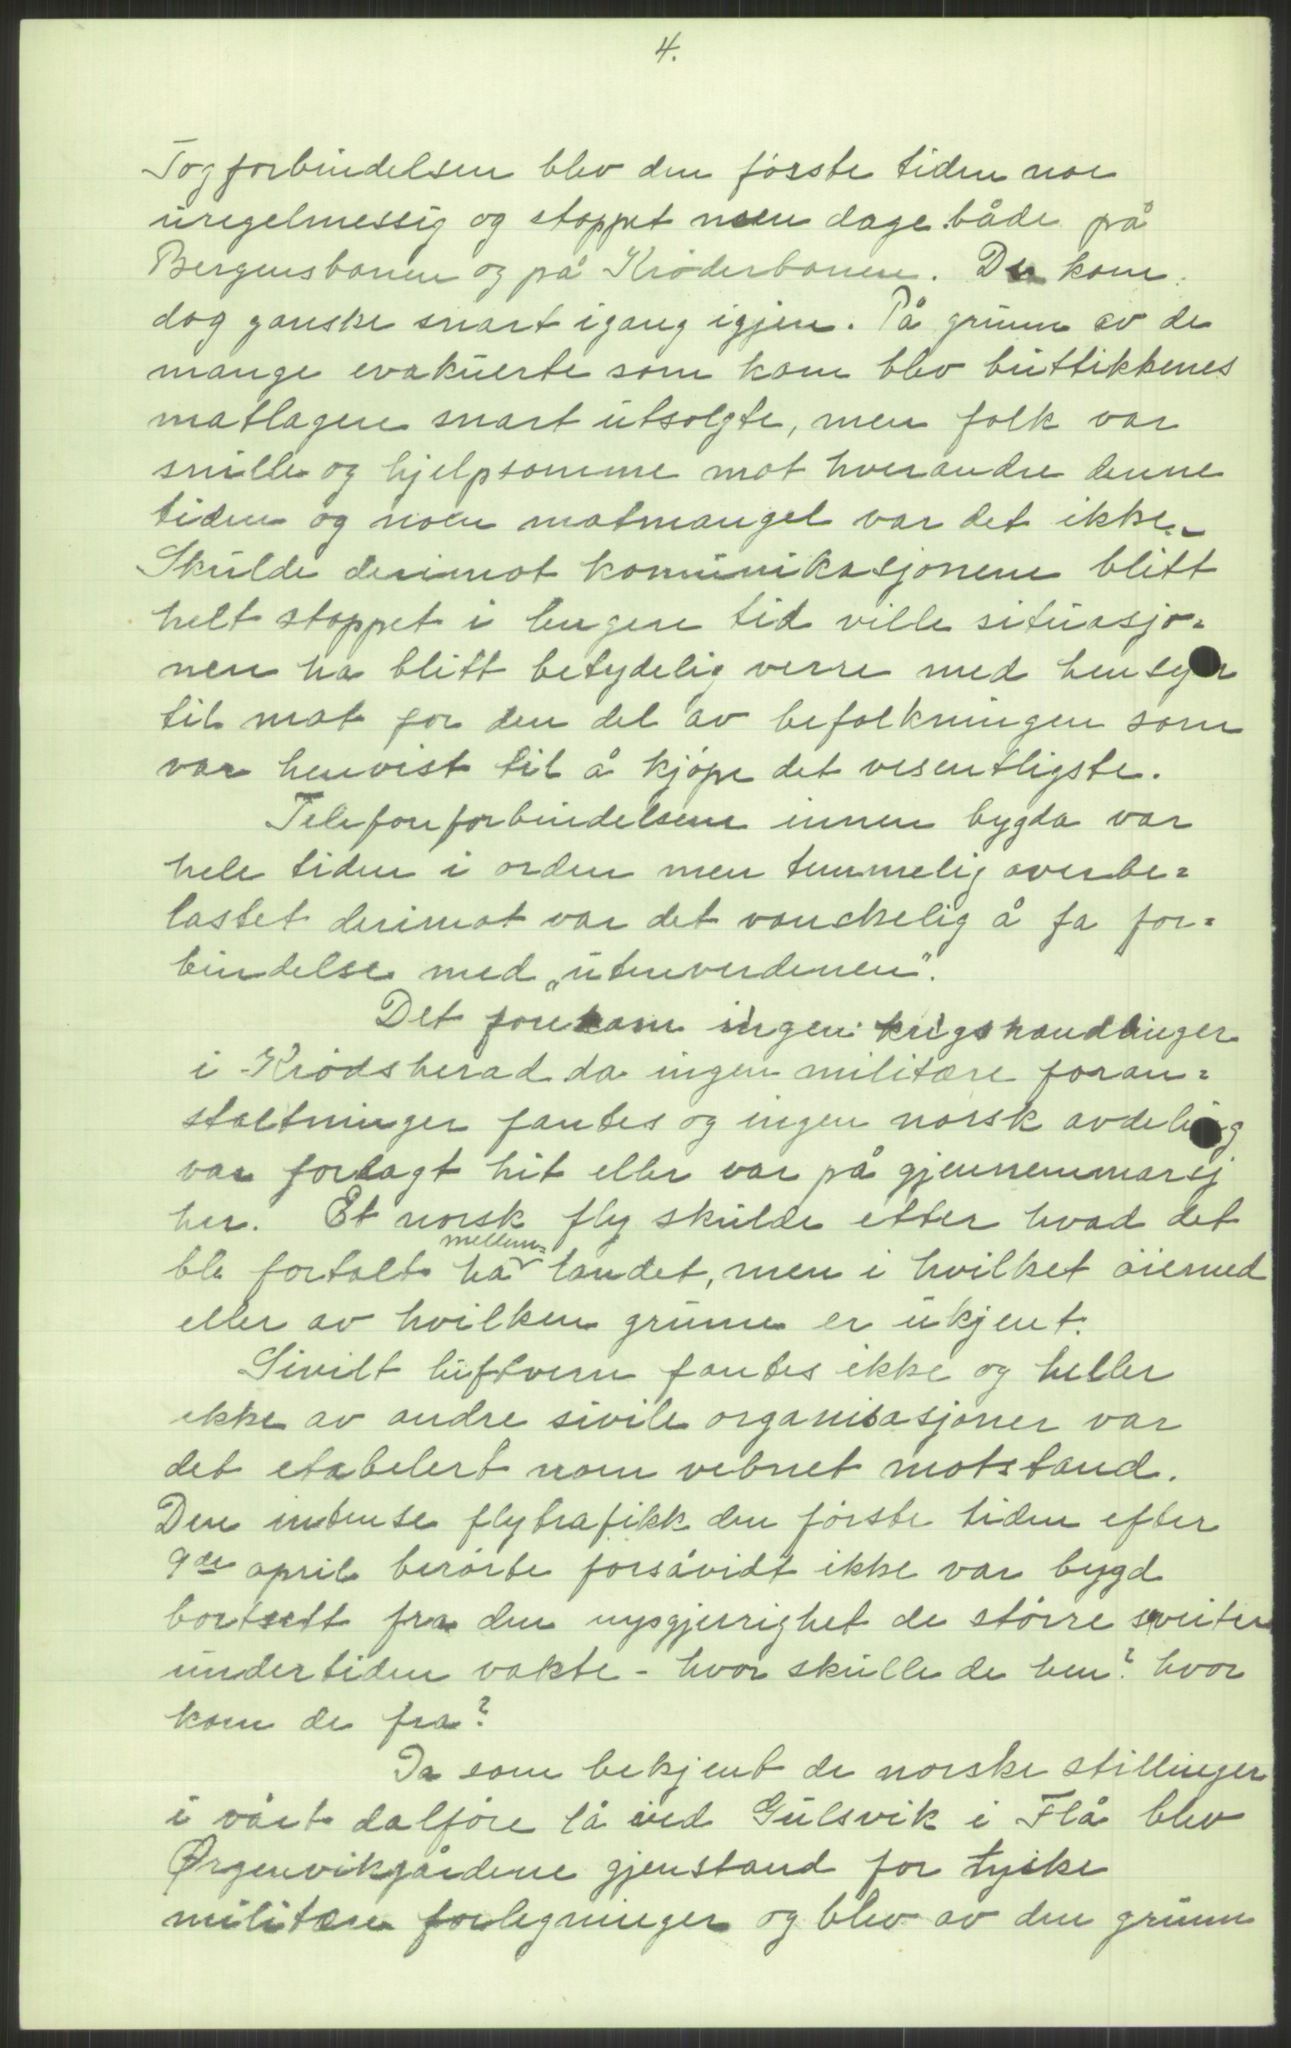 4.
Togforbindelsen blev den første tiden noe
uregelmessig og stoppet noen dage både på
Bergensbanen og på Krøderbanen. De kom
dog ganske snart igang igjen. På grunn av de
mange evakuerte som kom blev buttikkenes
matlagere snart utsolgte, men folk var
snille og hjelpsomme mot hverandre denne
tiden og noen matmangel var det ikke.
Skulde derimot komunikasjonene blitt
helt stoppet i lengere tid ville situasjo-
nen ha blitt betydelig verre med hensyn
til mat for den del av befolkningen som
var henvist til å kjøpe det vesentligste.
Telefonforbindelsene innen bygda var
hele tiden i orden men temmelig overbe-
lastet derimot var det vanskelig å få for-
bindelse med „utenverdenen".
Det forekom ingen krigshandlinger
i Krødsherad da ingen militære foran-
staltninger fantes og ingen norsk avdeling
var forlagt hit eller var på gjennemmarsj
her. Et norsk fly skulde etter hvad det
ble fortalt ha mellem- landet, men i hvilket øiemed
eller av hvilken grunn er ukjent.
Sivilt luftvern fantes ikke og heller
ikke av andre sivile organisasjoner var
det etabelert noen vebnet motstand.
Den intense flytrafikk den første tiden efter
9de april berørte forsåvidt ikke vår bygd
bortsett fra den nysgjerrighet de større
undertiden vakte - hvor skulle de hen? hvor
kom de fra?
Da som bekjent de norske stillinger
i vårt dalføre lå ved Gulsvik i Flå blev
Ørgenvikgårdene gjenstand for tyske
militære forlegninger og blev av den grunn